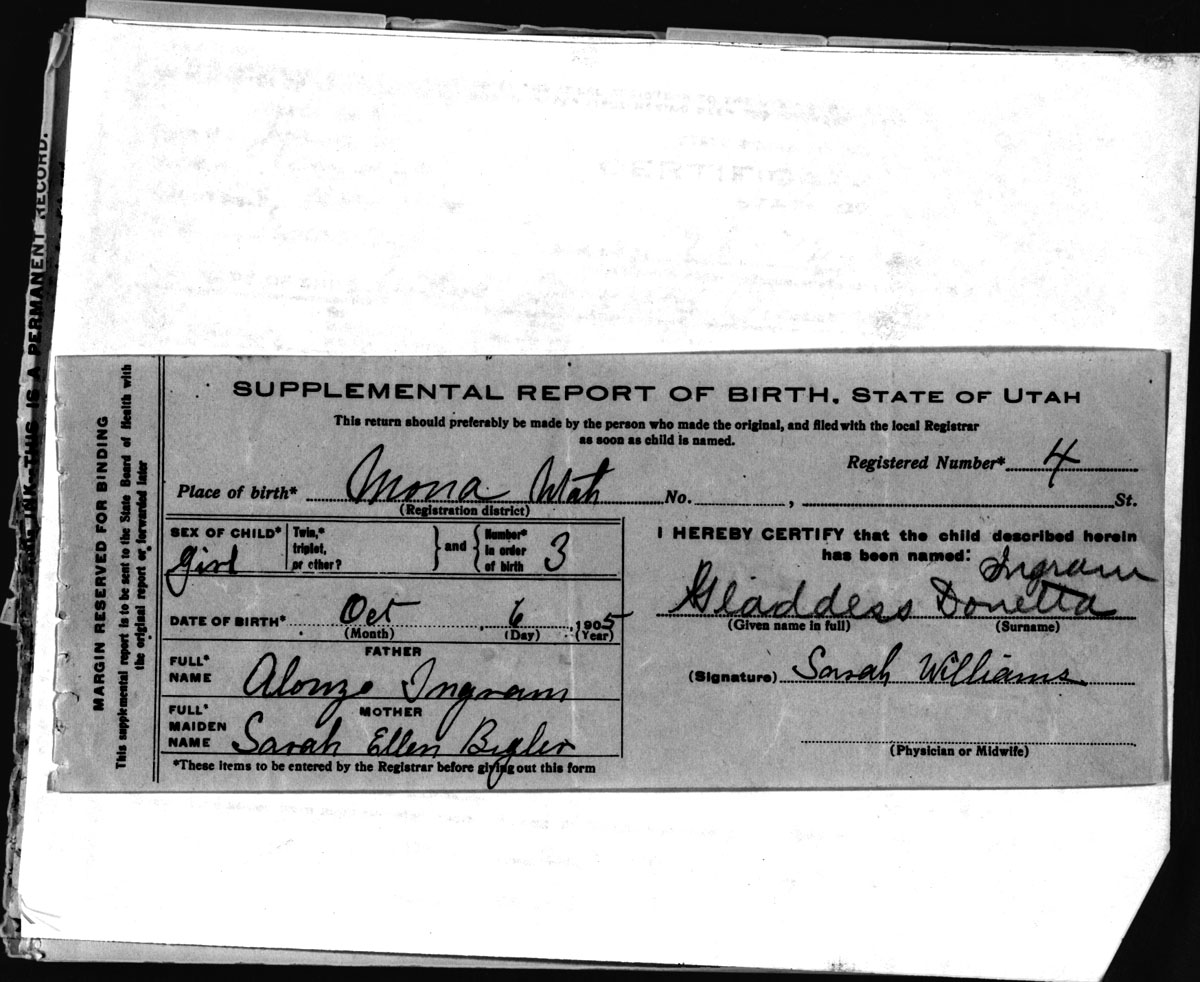 SUPPLEMENTAL REPORT OF BIRTH, STATE OF UTAH
This return should preferably be made by the person who made the original, and filed with the local Registrar
as soon as child is named.
Registered Number* 4
Place of birth* Mona Utah No. , St.
(Registration district)
SEX OF CHILD* Girl
Twin,* triplet, or other?
and
Number* in order of birth 3
DATE OF BIRTH* Oct , 6 , 1905
(Month) (Day) (Year)
FATHER
FULL* NAME Alonzo Ingram
MOTHER
FULL* MAIDEN NAME Sarah Ellen Bigler
*These items to be entered by the Registrar before giving out this form
I HEREBY CERTIFY that the child described herein
has been named:
Ingram
Gladdess Donetta
(Given name in full) (Surname)
(Signature) Sarah Williams
(Physician or Midwife)
MARGIN RESERVED FOR BINDING
This supplemental report is to be sent to the State Board of Health with
the original report or forwarded later
INK—THIS IS A PERMANENT RECORD.